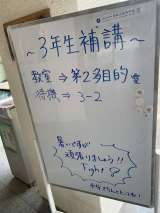 ～3年生補講～
教室⇒第2多目的室
待機⇒3-2
暑いですが
頑張りましょう!!
Fight